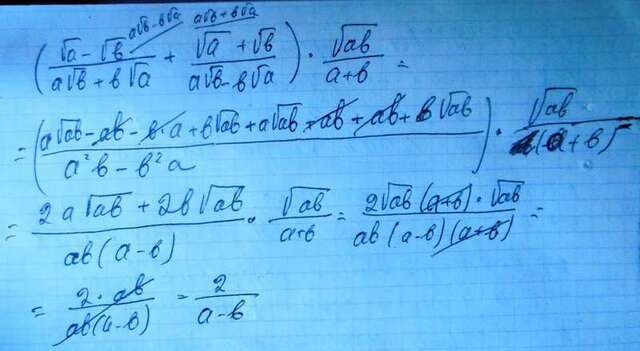 a√b - b√a a√b + b√a
( (√a - √b)/(a√b + b√a) + (√a + √b)/(a√b - b√a) ) · √ab/(a+b) =
= ( (a√ab - ab - b·a + b√ab + a√ab + ab + ab + b√ab)/(a²b - b²a) ) · √ab/(a+b)
= (2a√ab + 2b√ab)/(ab(a-b)) · √ab/(a+b) = (2√ab(a+b)·√ab)/(ab(a-b)(a+b)) =
= (2·ab)/(ab(a-b)) = 2/(a-b)